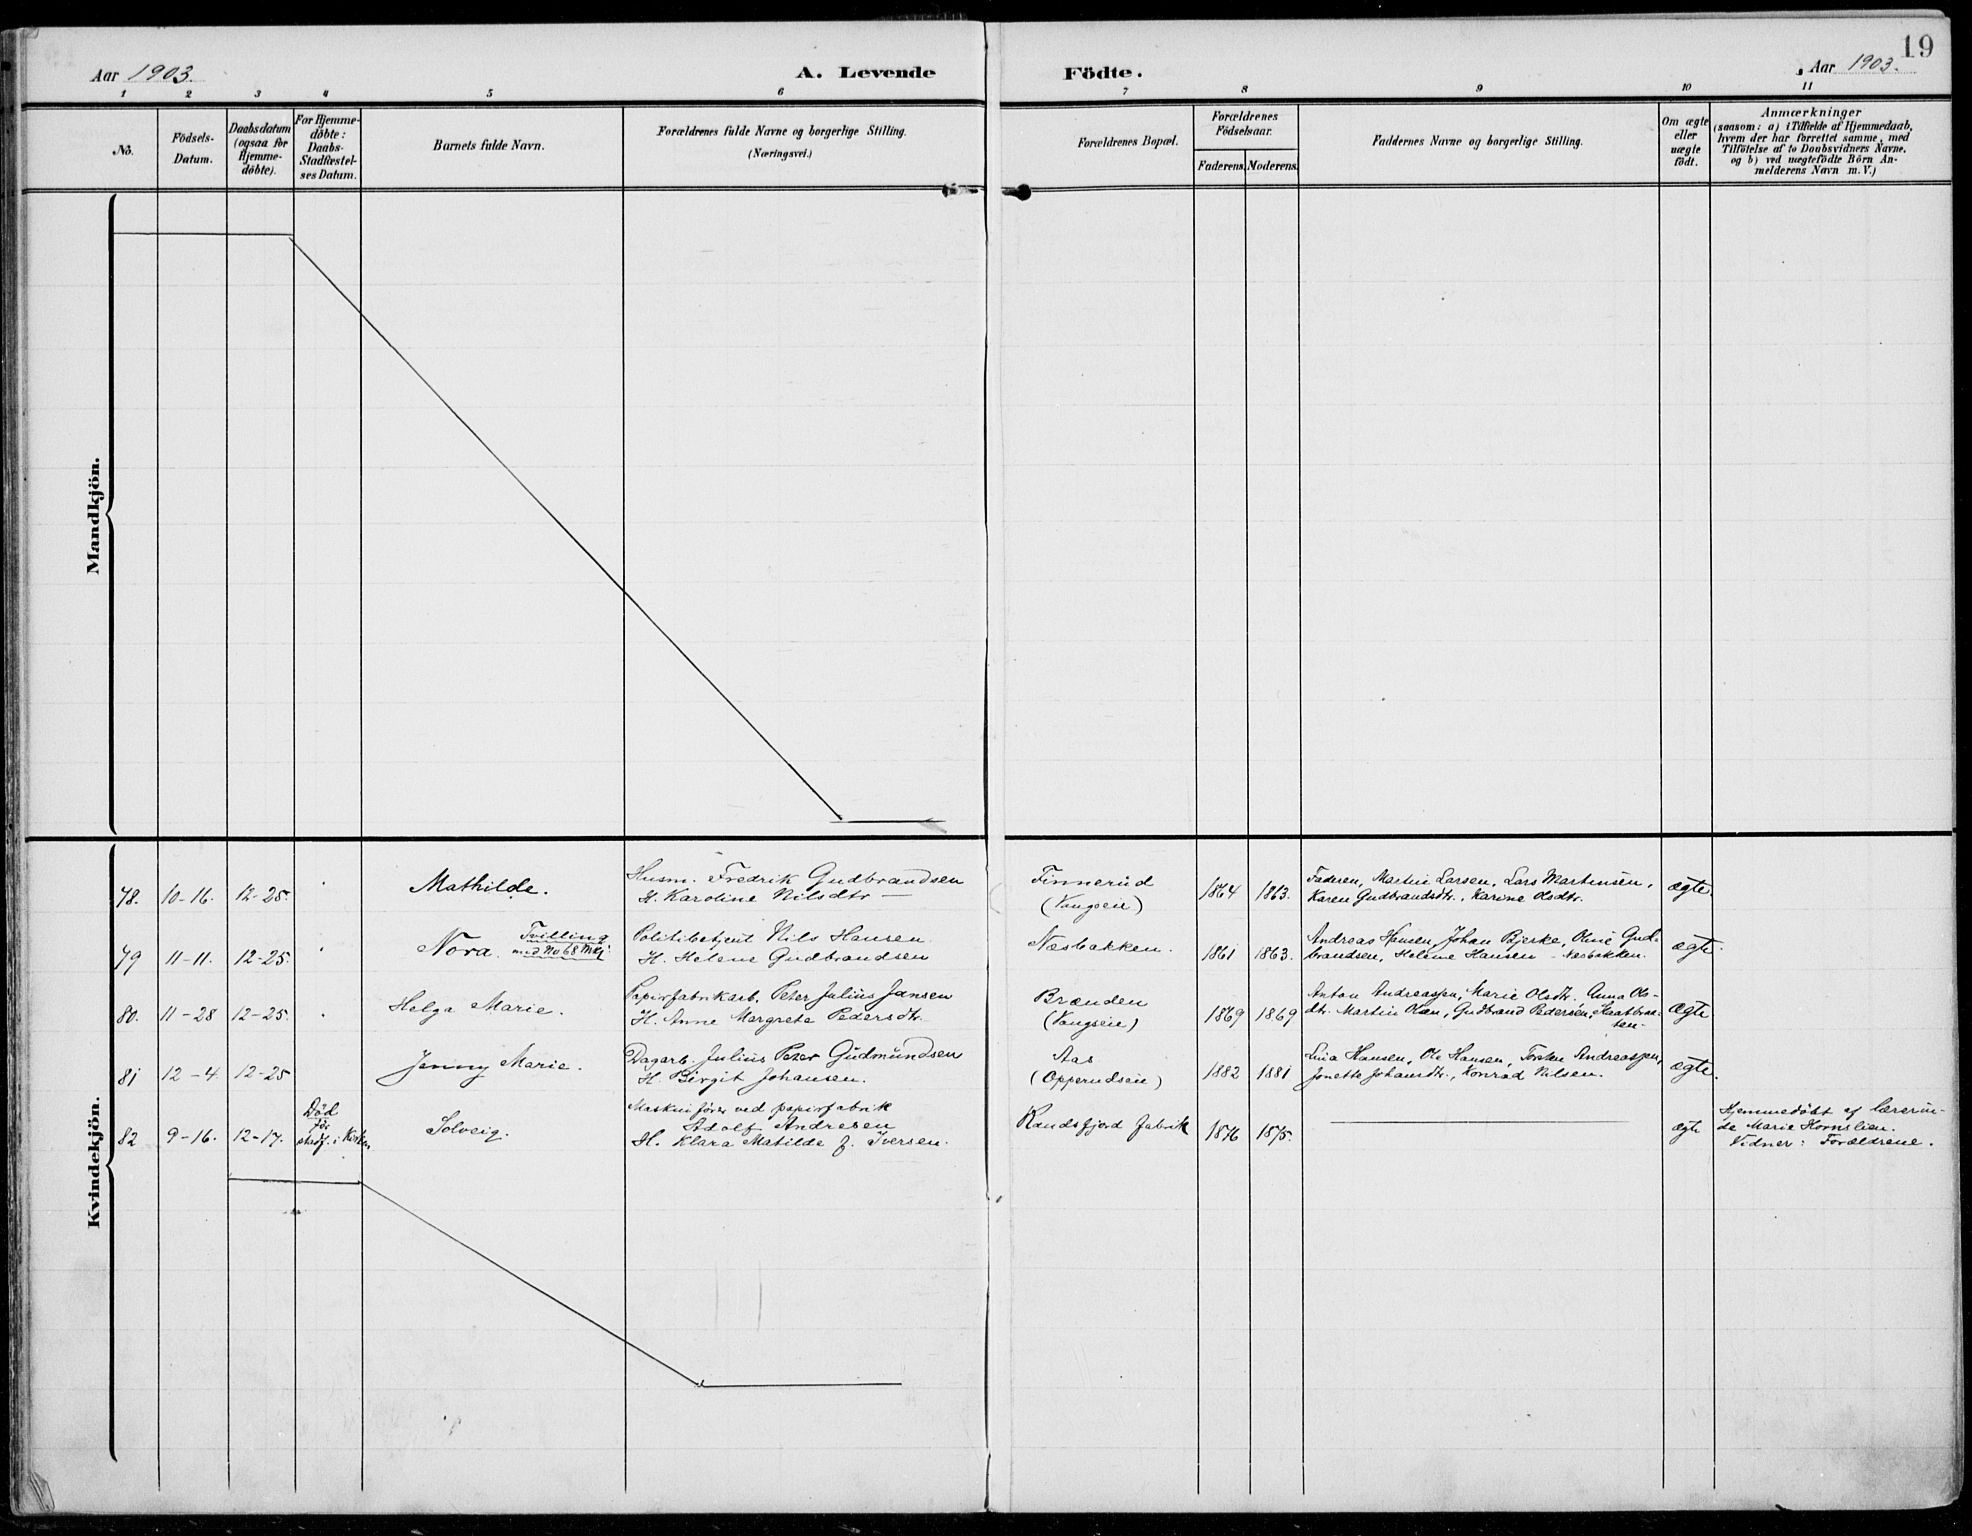 19
Aar 1903. A. Levende Födte. Aar 1903.
1 2 3 4 5 6 7 8 9 10 11
No.
Födsels-
Datum.
Daabsdatum
(ogsaa for
Hjemme-
døbte).
For Hjemme-
døbte:
Daabs-
Stadfæstel-
ses Datum.
Barnets fulde Navn.
Forældrenes fulde Navne og borgerlige Stilling.
(Næringsvei.)
Forældrenes Bopæl.
Forældrenes
Födselsaar.
Faderens. Moderens.
Faddernes Navne og borgerlige Stilling.
Om ægte
eller
uægte
født.
Anmærkninger
(saasom: a) i Tilfælde af Hjemmedaab,
hvem der har forrettet samme, med
Tilföielse af to Daabsvidners Navne,
og b) ved uægtefödte Börn An-
melderens Navn m. V.)
Mandkjön.
Kvindekjön.
78. 10-16. 12-25. Mathilde.
Husm. Fredrik Gudbrandsen
H. Karoline Nilsdtr
Finnerud
(Vangseie)
1864 1863.
Faderen, Martin Larsen, Lars Martinsen,
Karen Gudbrandsdtr., Karine Olsdtr.
ægte.
79 11-11. 12-25. Nora. Tvilling
med No 68 Mkj.
Politibetjent Nils Hansen
H. Helene Gudbrandsen
Næsbakken.
1861 1863.
Andreas Hansen, Johan Bjerke, Oline Gud-
brandsen, Helene Hansen - Næsbakken.
ægte.
80. 11-28 12-25. Helga Marie.
Papirfabrikarb. Peter Julius Jansen
H. Anne Margrete Pedersdtr.
Brænden
(Vangseie)
1869 1869
Anton Andreassen, Marie Olsdtr. Anna Ols-
dtr. Martin Olsen, Gudbrand Pedersen,
ægte
81 12-4. 12-25 Jenny Marie.
Dagarb. Julius Peter Gudmundsen
H. Birgit Johansen.
Aas
(Opperudseie)
1882 1881
Lina Hansen, Ole Hansen, Torsten Andreassen,
Jonette Johansdtr., Konrad Nilsen.
ægte.
82 9-16. 12-17. Død
før
stadf. i Kirken
Solveig.
Maskinfører ved papirfabrik
Adolf Andresen
H. Klara Matilde f. Iversen.
Randsfjord fabrik
1876 1875.
ægte
Hjemmedøbt af lærerin-
de Marie Hornslien.
Vidner: Forældrene.